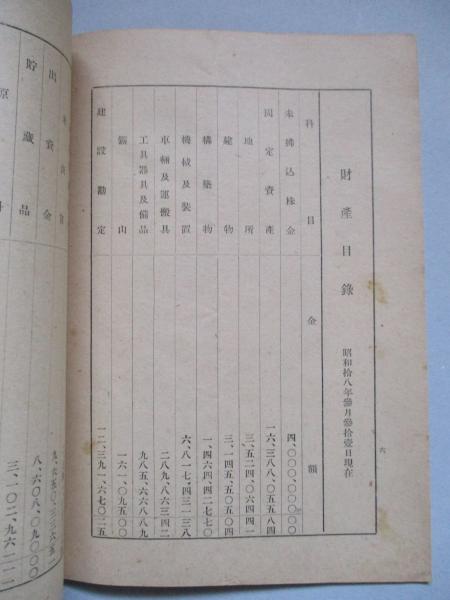 六
財產目錄 昭和拾八年參月參拾壹日現在
科目 金額
未拂込株金 四、〇〇〇、〇〇〇〇〇
固定資產 一六、三八八、〇五五八四
地所 三、五二四、〇六四四二
建物 三、一四五、五〇五〇四
構築物 一、四六四、四二七七〇
機械及裝置 六、八一七、四三一三八
車輛及運搬具 二八九、八六三四二
工具器具及備品 九八五、六六八八九
鑛山 一六一、〇九五〇〇
建設勘定 一二、三九一、六七〇二五
出資金 八、六〇八、〇九〇〇〇
貯藏品
原